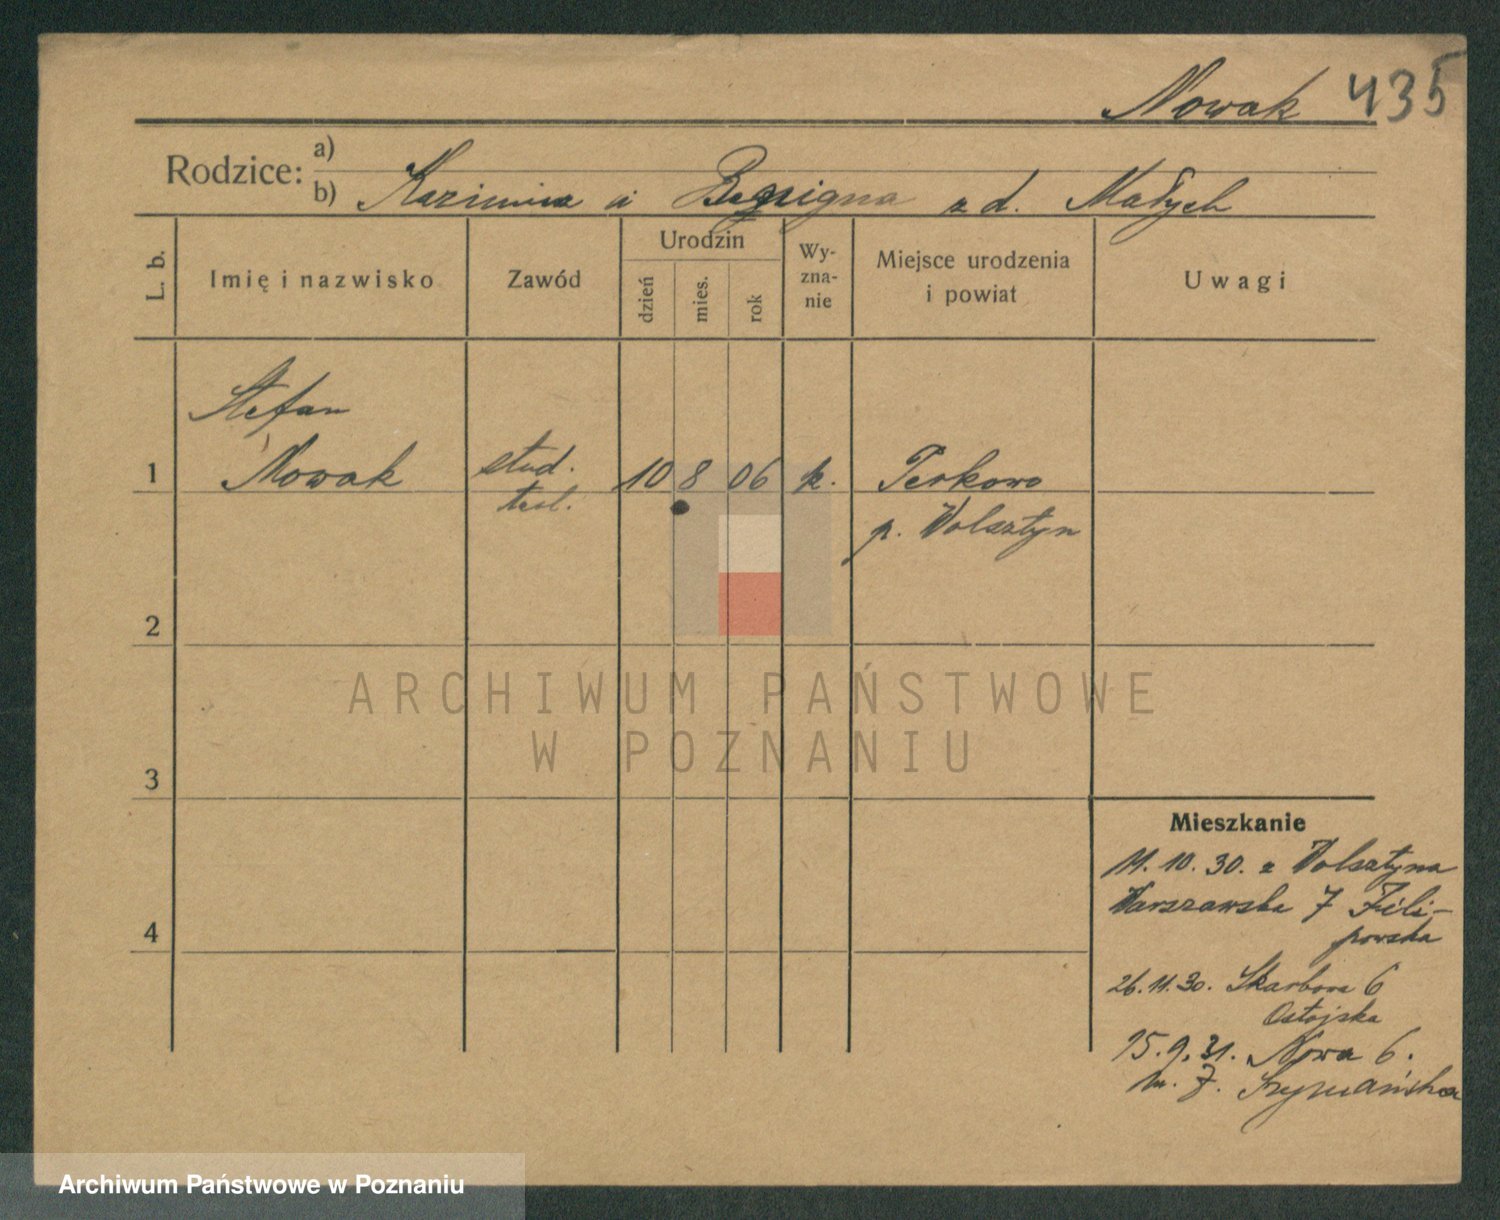 Nowak 435
Rodzice: a)
b) Kazimierz i Benigna z d. Małych
L. b.
Imię i nazwisko
Zawód
Urodzin
dzień
mies.
rok
Wy-
zna-
nie
Miejsce urodzenia
i powiat
Uwagi
Stefan
1 Nowak stud. 10 8 06 k. Perkowo
p. Wolsztyn
2
3
4
Mieszkanie
11.10.30. z Wolsztyna
Warszawska 7 Fili-
powska
26.11.30. Skarbowa 6
Ostojska
15.9.31. Nowa 6.
m. 7. Szymańska
ARCHIWUM PAŃSTWOWE
W POZNANIU
Archiwum Państwowe w Poznaniu